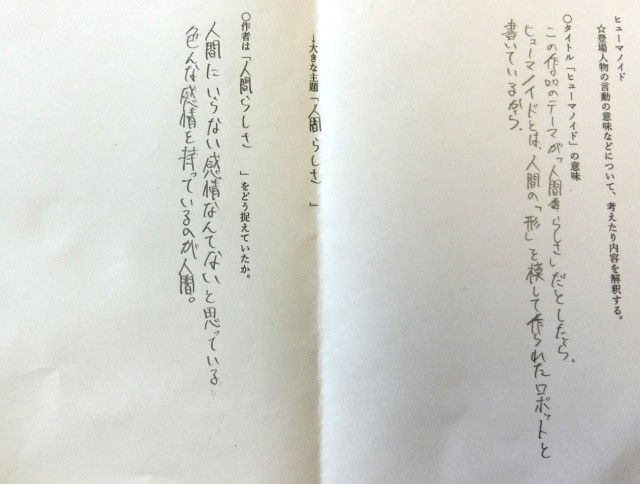 ヒューマノイド
☆登場人物の言動の意味などについて、考えたり内容を解釈する。
〇タイトル「ヒューマノイド」の意味
この作品のテーマが「人間らしさ」だとしたら、
ヒューマノイドとは、人間の「形」を模して作られたロボットと
書いているから。
↓大きな主題「人間らしさ」
〇作者は「人間らしさ」をどう捉えていたか。
人間にいらない感情なんてないと思っている。
色んな感情を持っているのが人間。